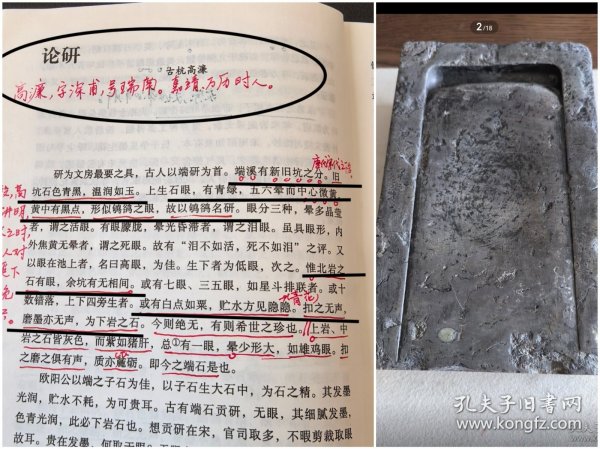 论研
古杭高濂
高濂，字深甫，号瑞南。嘉靖、万历时人。
研为文房最要之具，古人以端研为首。端溪有新旧坑之分。旧
坑石色青黑，温润如玉。上生石眼，有青绿，五六晕而中心微黄，
黄中有黑点，形似鸲鹆之眼，故以鸲鹆名研。眼分三种，晕多晶莹
者，谓之活眼。有眼朦胧，晕光昏滞者，谓之泪眼。虽具眼形，内
外焦黄无晕者，谓之死眼。故有“泪不如活，死不如泪”之评。又
以眼在池上者，名曰高眼，为佳。生下者为低眼，次之。惟北岩之
石有眼，余坑有无相间。或有七眼、三五眼，如星斗排联者。或十
数错落，上下四旁生者。或有白点如粟，贮水方见隐隐。扣之无声，
青花
磨墨亦无声，为下岩之石。今则绝无，有则希世之珍也。上岩、中
岩之石皆灰色，而紫如猪肝，总①有一眼，晕少形大，如雄鸡眼。扣
之磨之俱有声，质亦粗砺。即今之端石是也。
欧阳公以端之子石为佳，以子石生大石中，为石之精。其发墨
光润，贮水不耗，为可贵耳。古有端石贡研，无眼，其细腻发墨，
色青光润，此必下岩石也。想贡研在宋，官司取多，不暇剪裁取眼
故耳。贵在发墨，何取无眼。
2/18
孔夫子旧书网
KONGFZ.COM